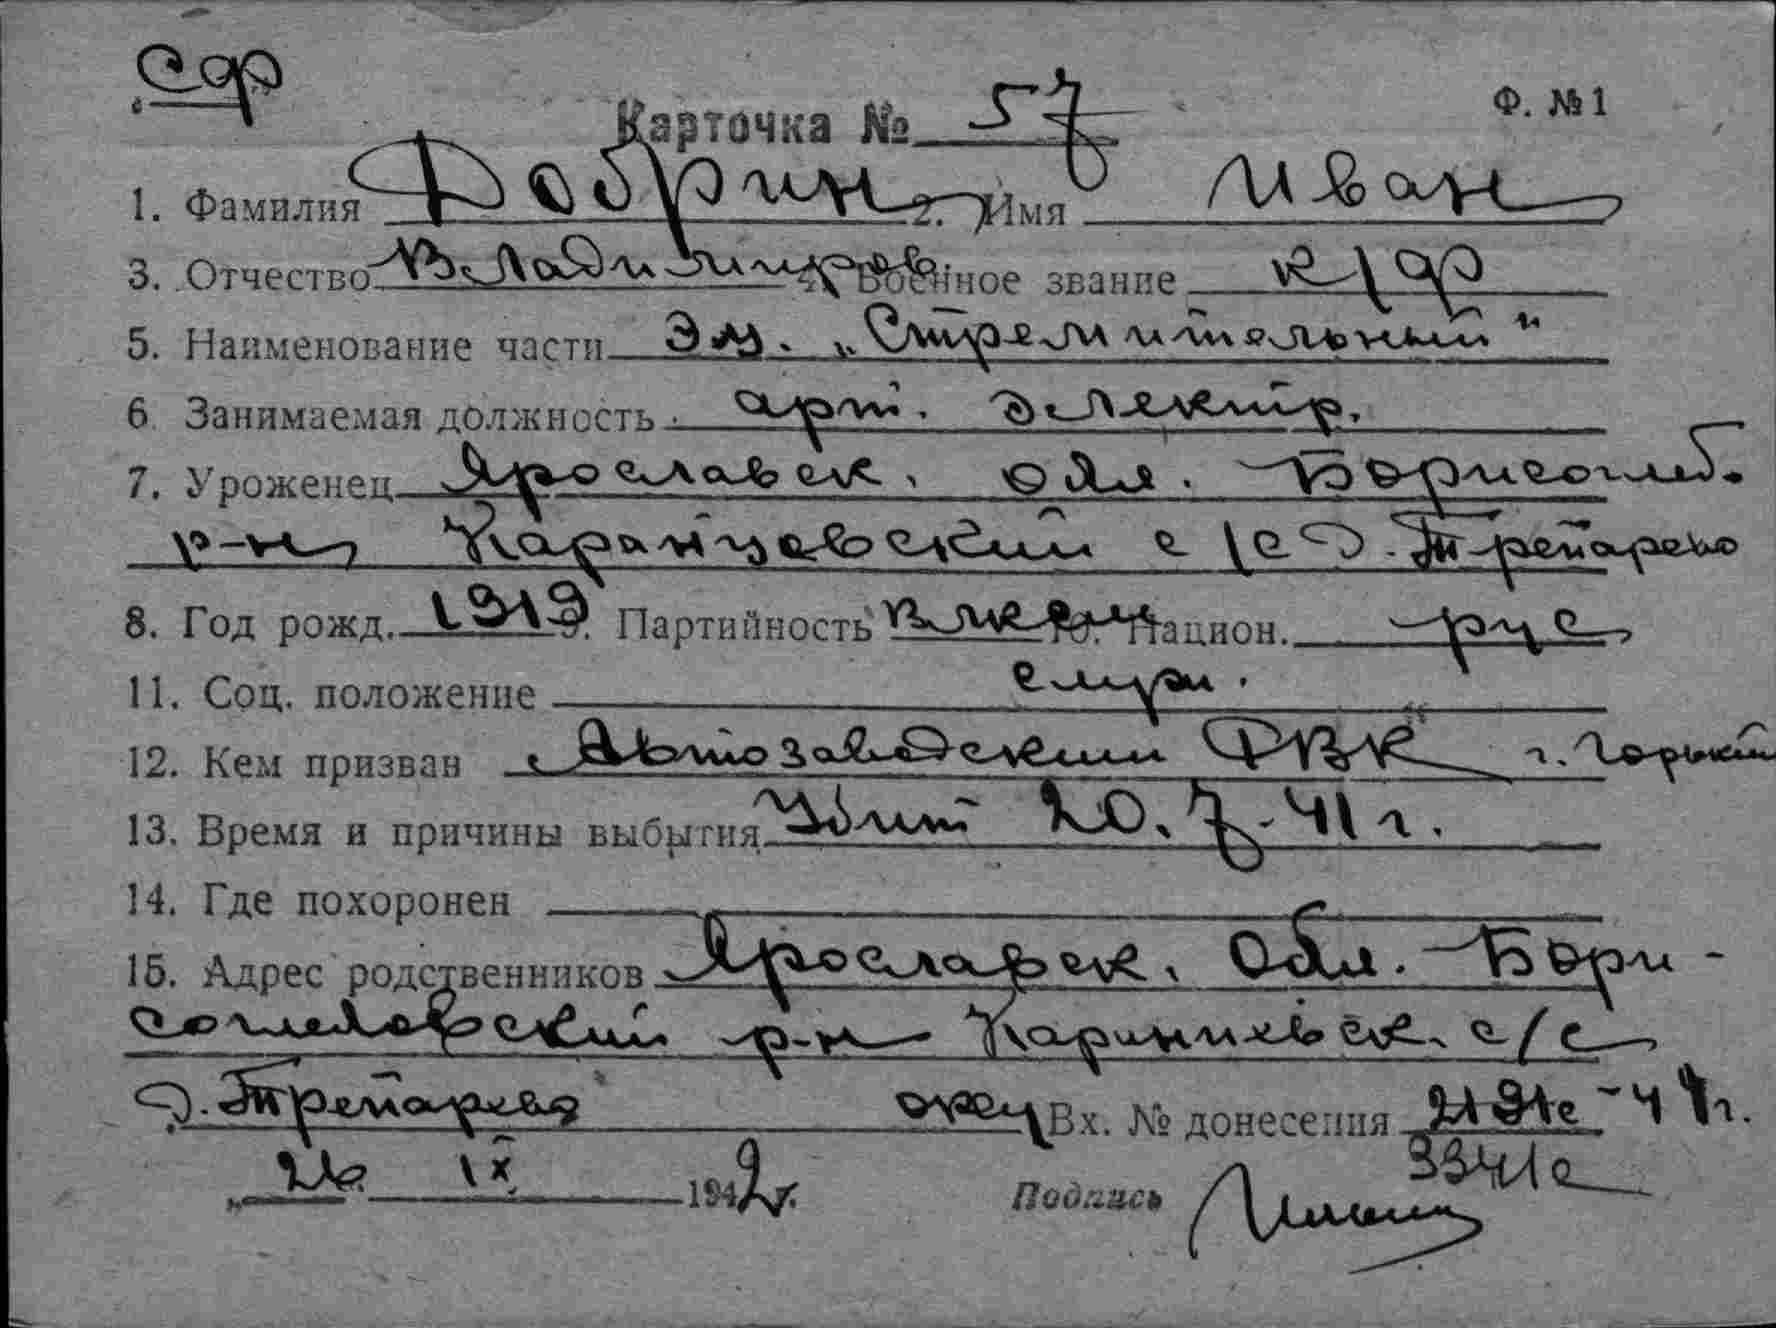 сдр
Карточка № 57 Ф. №1
1. Фамилия Добрин 2. Имя Иван
3. Отчество Владимиров. 4. Военное звание к/ф
5. Наименование части Эм. „Стремительный"
6. Занимаемая должность арт. электр.
7. Уроженец Ярославск. обл. Борисоглеб.
р-н Каранцевский с/с д. Трепарево
8. Год рожд. 1919 9. Партийность влксм 10. Национ. рус
11. Соц. положение служ.
12. Кем призван Автозаводским РВК г. Горький
13. Время и причины выбытия Убит 20.7-41 г.
14. Где похоронен
15. Адрес родственников Ярославск. Обл. Бори-
соглебовский р-н Каринневск. с/с
д. Трепарево отец Вх. № донесения 2191с-41г.
3341с
„26 IX 1942 г. Подпись